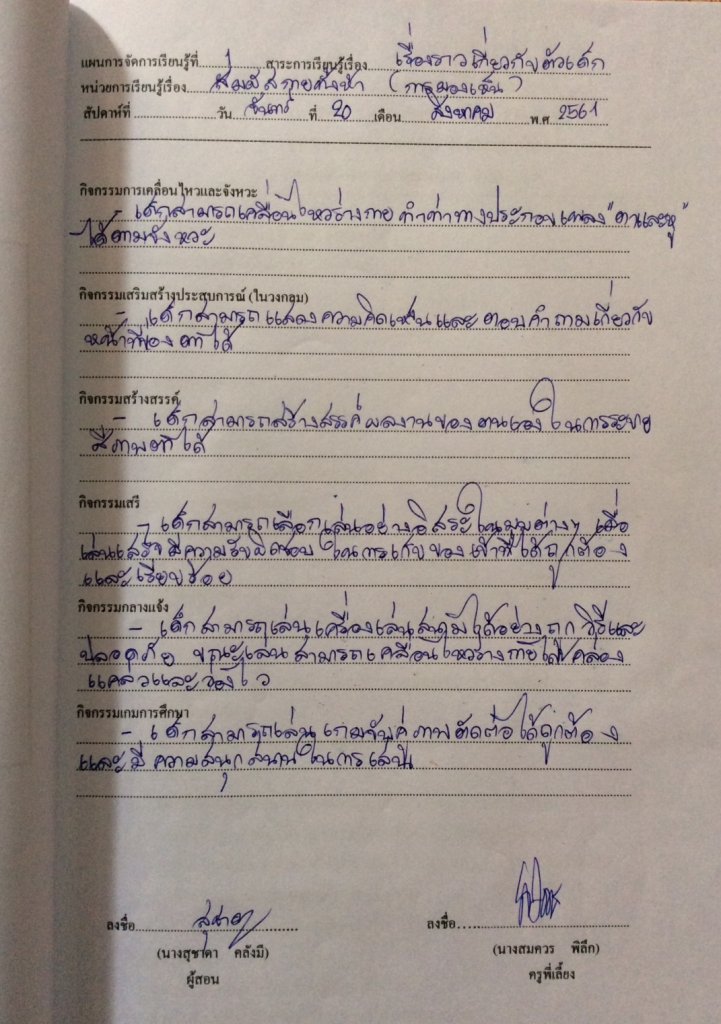 แผนการจัดการเรียนรู้ที่ 1 สาระการเรียนรู้เรื่อง เรื่องราวเกี่ยวกับตัวเด็ก
หน่วยการเรียนรู้เรื่อง สัมผัสกายทั้งห้า (การมองเห็น)
สัปดาห์ที่ วัน จันทร์ ที่ 20 เดือน สิงหาคม พ.ศ 2561
กิจกรรมการเคลื่อนไหวและจังหวะ
- เด็กสามารถเคลื่อนไหวร่างกาย ทำท่าทางประกอบเพลง "ตาและหู"
ได้ตามจังหวะ
กิจกรรมเสริมสร้างประสบการณ์ (ในวงกลม)
- เด็กสามารถแสดงความคิดเห็นและตอบคำถามเกี่ยวกับ
หน้าที่ของตาได้
กิจกรรมสร้างสรรค์
- เด็กสามารถสร้างสรรค์ผลงานของตนเองในการระบาย
สีภาพตาได้
กิจกรรมเสรี
- เด็กสามารถเลือกเล่นอย่างอิสระในมุมต่างๆ เมื่อ
เล่นเสร็จมีความรับผิดชอบในการเก็บของเข้าที่ได้ถูกต้อง
และเรียบร้อย
กิจกรรมกลางแจ้ง
- เด็กสามารถเล่นเครื่องเล่นสนามได้อย่างถูกวิธีและ
ปลอดภัย ขณะเล่นสามารถเคลื่อนไหวร่างกายได้คล่อง
แคล่วและว่องไว
กิจกรรมเกมการศึกษา
- เด็กสามารถเล่นเกมจับคู่ภาพตัดต่อได้ถูกต้อง
และมีความสนุกสนานในการเล่น
ลงชื่อ สุชาดา ลงชื่อ
(นางสุชาดา คลังมี) (นางสมควร พิลึก)
ผู้สอน ครูพี่เลี้ยง